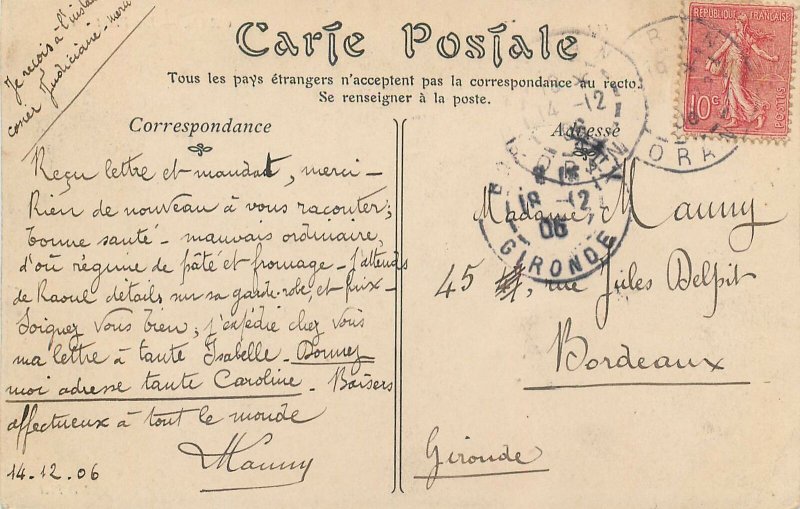 Je reçois à l'instant
courrier Judiciaire - merci
Carte Postale
Tous les pays étrangers n'acceptent pas la correspondance au recto.
Se renseigner à la poste.
Correspondance
Adresse
Reçu lettre et mandat, merci -
Rien de nouveau à vous raconter;
bonne santé - mauvais ordinaire,
d'où régime de pâté et fromage - J'attends
de Raoul détails sur sa garde-robe, et prix -
Soignez vous bien; j'expédie chez vous
ma lettre à tante Isabelle - Donnez
moi adresse tante Caroline - Baisers
affectueux à tout le monde
Mauny
14.12.06
Madame Mauny
45 rue Jules Delpit
Bordeaux
Gironde
RÉPUBLIQUE FRANÇAISE
10c
POSTES
ORAN
14 -12
18 -12
06
GIRONDE